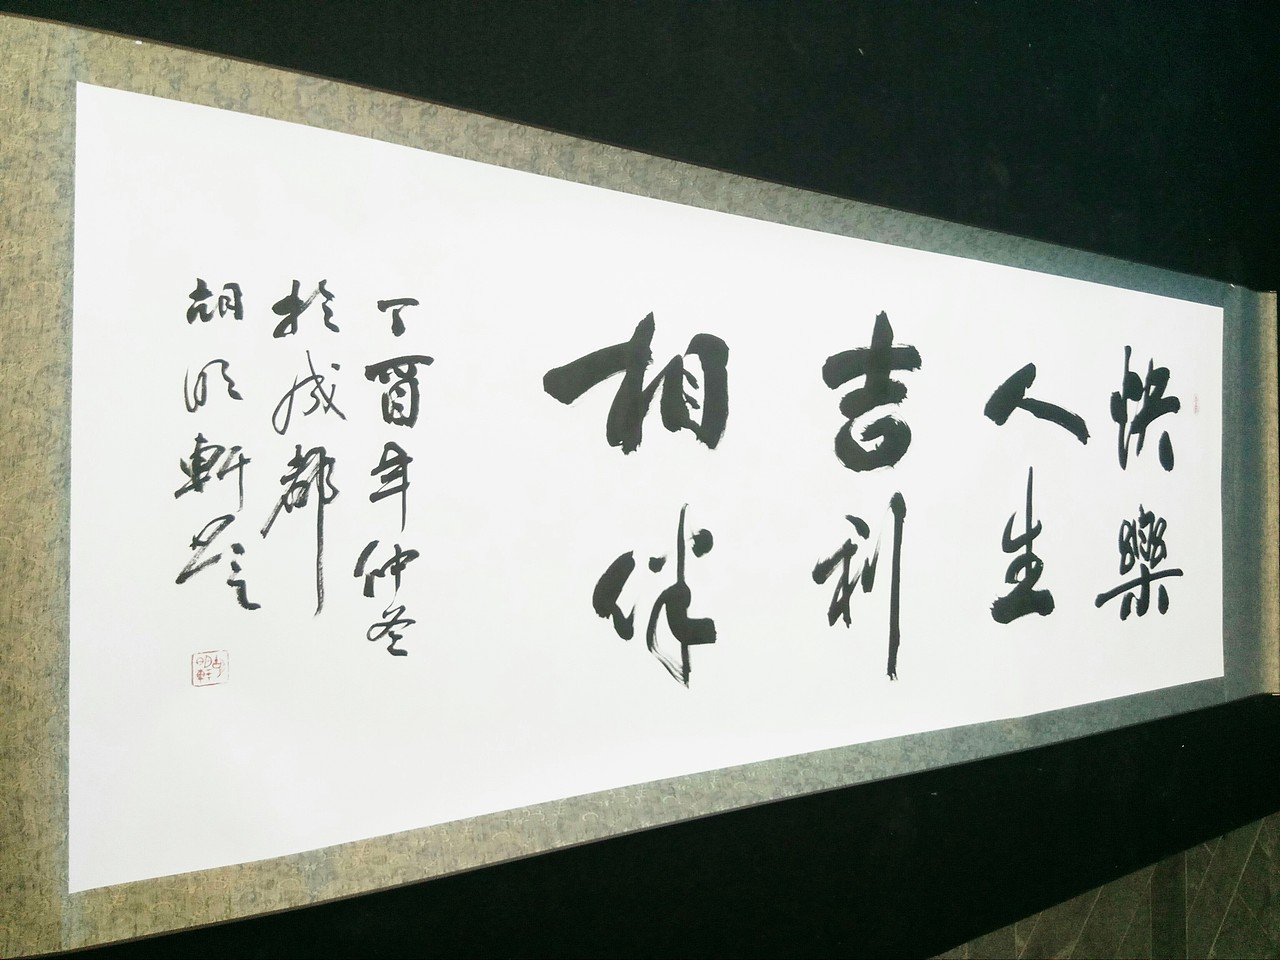 快樂
人生
吉利
相伴
丁酉年仲冬
於成都
胡明軒書
明軒